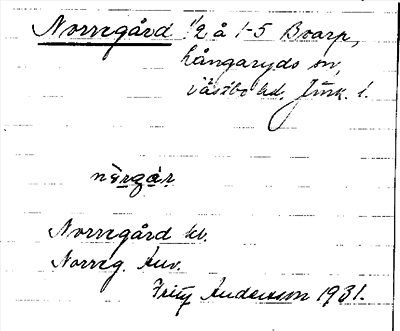 Norregård 1/2 å 1-5 Boarp,
Långaryds sn,
Västbo hd. Jönk. l.
Norregård hv.
Norreg. Auv.
Fritz Andersson 1931.